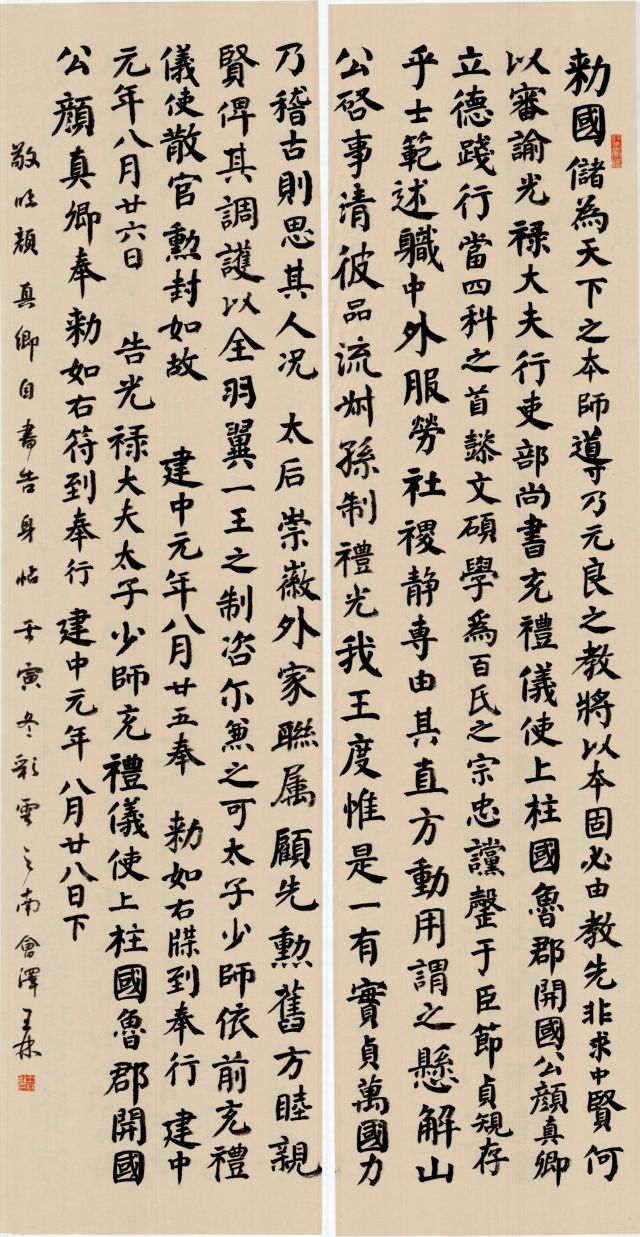 勅國儲為天下之本師導乃元良之教將以本固必由教先非求中賢何
以審諭光禄大夫行吏部尚書充禮儀使上柱國魯郡開國公顏真卿
立德踐行當四科之首懿文碩學為百氏之宗忠讜罄于臣節貞規存
乎士範述職中外服勞社稷静專由其直方動用謂之懸解山
公啓事清彼品流叔孫制禮光我王度惟是一有實貞萬國力
乃稽古則思其人况 太后崇徽外家聯属顧先勲舊方睦親
賢俾其調護以全羽翼一王之制咨尔兼之可太子少師依前充禮
儀使散官勲封如故 建中元年八月廿五奉 勅如右牒到奉行 建中
元年八月廿六日 告光禄大夫太子少師充禮儀使上柱國魯郡開國
公顏真卿奉勅如右符到奉行 建中元年八月廿八日下
敬临顏真卿自書告身帖壬寅冬彩雲之南會澤王林